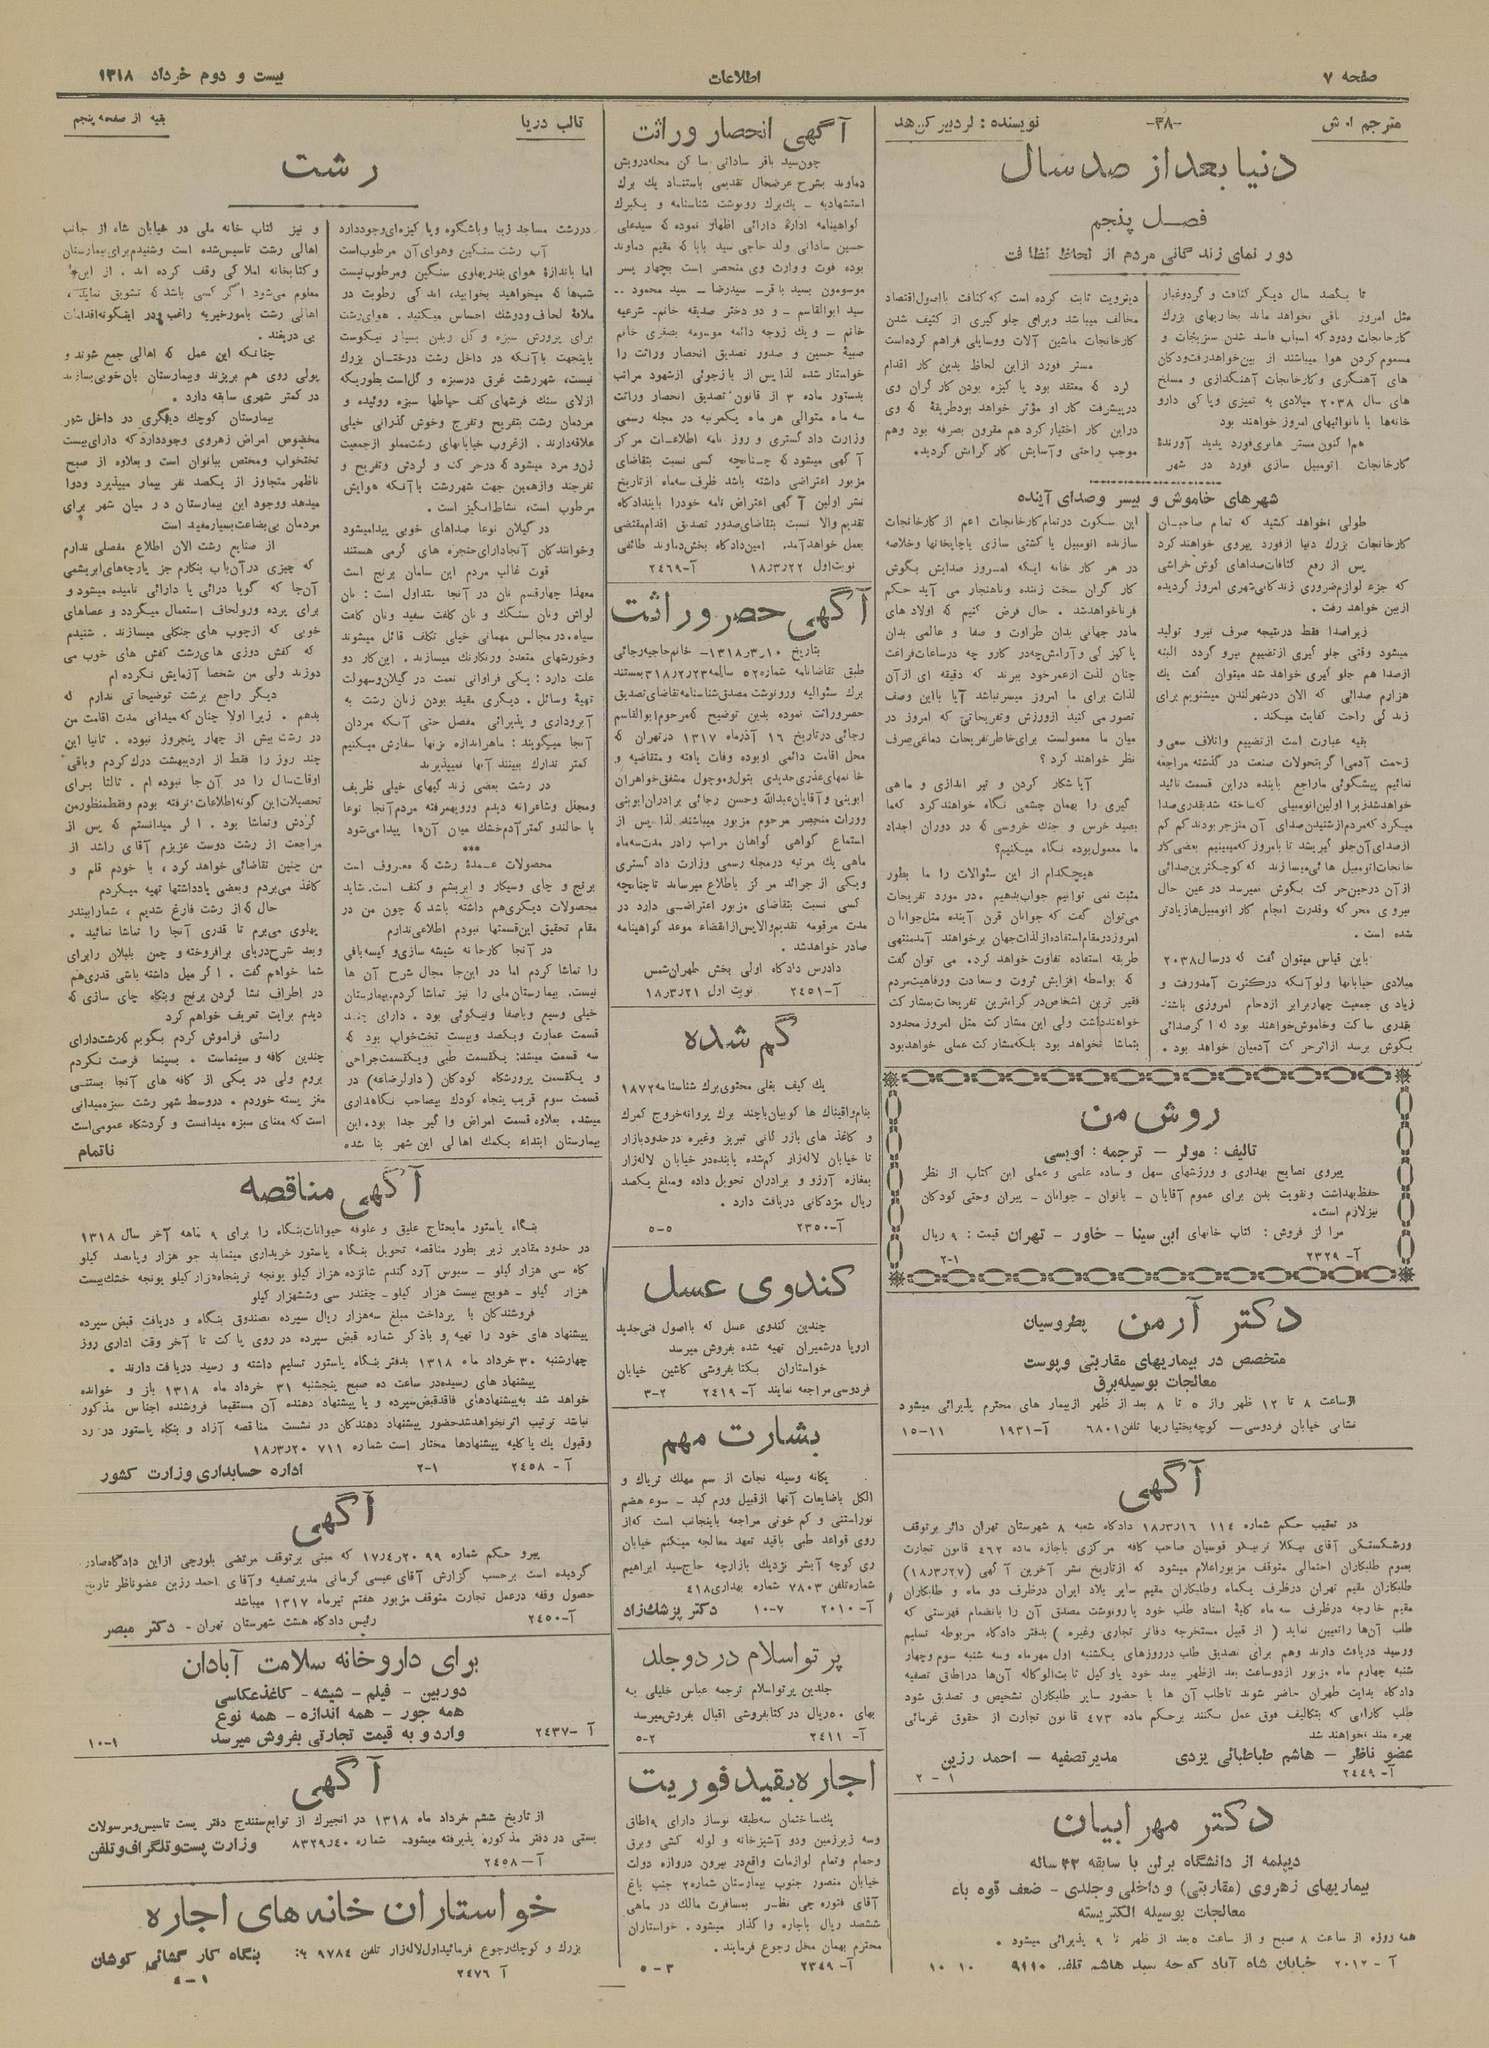 صفحه ۷
اطلاعات
بیست و دوم خرداد ۱۳۱۸
مترجم ا. ش
-۳۸-
نویسنده : لردبیرکن‌هد
دنیا بعد از صد سال
فصل پنجم
دورنمای زندگانی مردم از لحاظ نظافت
تا یکصد سال دیگر کثافت و گردوغبار
مثل امروز باقی نخواهد ماند بخاریهای بزرگ
کارخانجات ودود که اسباب فاسد شدن سبزیجات و
مسموم کردن هوا میباشند از بین‌خواهدرفت‌ودکان
های آهنگری وکارخانجات آهنگدازی و مسلخ
های سال ۲۰۳۸ میلادی به تمیزی وپاکی دارو
خانه‌ها یا نانوائیهای امروز خواهند بود
هم‌اکنون مستر هانری‌فورد پدید آورندهٔ
کارخانجات اتومبیل سازی فورد در شهر
دیترویت ثابت کرده است که کثافت بااصول اقتصاد
مخالف میباشد وبرای جلوگیری از کثیف شدن
کارخانجات ماشین آلات ووسایلی فراهم کرده‌است
مستر فورد ازاین لحاظ بدین کار اقدام
کرد که معتقد بود پاکیزه بودن کارگران وی
درپیشرفت کار او مؤثر خواهد بودطریقهٔ که وی
دراین کار اختیارکرد هم مقرون بصرفه بود وهم
موجب راحتی وآسایش کارگرانش گردید.
شهرهای خاموش و بیسر وصدای آینده
طولی نخواهد کشید که تمام صاحبان
کارخانجات بزرگ دنیا ازفورد پیروی خواهند کرد
پس از رفع کثافات‌صداهای گوش‌خراشی
که جزء لوازم‌ضروری زندگانی‌شهری امروز گردیده
ازبین خواهد رفت.
زیراصدا فقط درنتیجه صرف نیرو تولید
میشود وقتی جلو گیری ازتضییع نیرو گردد البته
ازصدا هم جلو گیری خواهد شد میتوان گفت یک
هزارم صدائی که الان درشهرلندن میشنویم برای
زندگی راحت کفایت میکند.
بقیه عبارت است ازتضییع واتلاف سعی‌و
زحمت آدمی‌اگربتحولات صنعت در گذشته مراجعه
نمائیم پیشگوئی ماراجع بآینده دراین قسمت تائید
خواهدشدزیرا اولین‌اتومبیلی که‌ساخته شدبقدری‌صدا
میکردکه‌مردم‌ازشنیدن صدای آن منزجربودند کم کم
ازصدای‌آن‌جلوگیری‌شد تا بامروز که‌میبینیم بعضی‌کار
خانجات‌اتومبیل هائی‌میسازند که کوچکترین‌صدائی
ازآن درحین‌حرکت بگوش نمیرسد درعین حال
نیروی محرکه وقدرت انجام کار اتومبیل‌هازیادتر
شده است.
باین قیاس میتوان گفت که درسال ۲۰۳۸
میلادی خیابانها ولوآنکه درکثرت آمدورفت و
زیادی جمعیت چهاربرابر ازدحام امروزی باشند
بقدری ساکت وخاموش‌خواهند بود که اگر صدائی
بگوش برسد ازاثرحرکت آدمیان خواهد بود.
این سکوت درتمام‌کارخانجات اعم از کارخانجات
سازنده اتومبیل یا کشتی سازی یاچاپخانها وخلاصه
در هر کار خانه ایکه امروز صدایش بگوش
کارگران سخت زننده وناهنجار می آید حکم
فرماخواهدشد. حال فرض کنیم که اولادهای
مادر جهانی بدان طراوت و صفا و عالمی بدان
پاکیزگی وآرامش‌چه‌در کارو چه درساعات‌فراغت
چنان لذت ازعمرخود ببرند که دقیقه ای‌ازآن
لذات برای ما امروز میسرنباشد آیا بااین وصف
تصور می کنید ازورزش وتفریحاتی که امروز در
میان ما معمولست برای‌خاطرتفریحات دماغی‌صرف
نظر خواهند کرد؟
آیاشکار کردن و تیر اندازی و ماهی
گیری را بهمان چشمی نگاه خواهندکرد که‌ما
بصید خرس و جنگ خروسی که در دوران اجداد
ما معمول‌بوده نگاه میکنیم؟
هیچکدام از این سئوالات را ما بطور
مثبت نمی توانیم جواب‌بدهیم. در مورد تفریحات
می‌توان گفت که جوانان قرن آینده مثل‌جوانان
امروزدرمقام‌استفاده‌ازلذات‌جهان برخواهند آمدمنتهی
طریقه استفاده تفاوت خواهدکرد. می توان گفت
که بواسطه افزایش ثروت و سعادت ورفاهیت‌مردم
فقیر ترین اشخاص‌در گرانترین تفریحات‌بمشارکت
خواهندداشت ولی این مشارکت مثل امروز محدود
بتماشا نخواهد بود بلکه‌مشارکت عملی خواهدبود
روش من
تالیف : مولر – ترجمه : اویسی
پیروی نصایح بهداری و ورزشهای سهل و ساده علمی و عملی این کتاب از نظر
حفظ‌بهداشت وتقویت بدن برای عموم آقایان - بانوان - جوانان - پیران وحتی کودکان
نیزلازم است.
مراکز فروش : کتاب خانهای ابن سینا – خاور – تهران قیمت : ۹ ریال
آ- ۲۳۲۹ ۱-۲
دکتر آرمن پطروسیان
متخصص در بیماریهای مقاربتی وپوست
معالجات بوسیله‌برق
ازساعت ۸ تا ۱۲ ظهر واز ۵ تا ۸ بعد از ظهر ازبیمار های محترم پذیرائی میشود
نشانی خیابان فردوسی – کوچه‌بختیاریها تلفن ۶۸۰۱ آ-۱۹۳۱ ۱۱-۱۵
آگهی
در تعقیب حکم شماره ۱۱۴ ۱۸/۳/۱۶ دادگاه شعبه ۸ شهرستان تهران دائر برتوقف
ورشکستگی آقای نیکلا صاحب کافه مرکزی باجازه ماده ۴۶۲ قانون تجارت
بعموم طلبکاران احتمالی متوقف مزبوراعلام میشود که ازتاریخ نشر آخرین آگهی (۱۸/۳/۲۷)
طلبکاران مقیم تهران درظرف یکماه وطلبکاران مقیم سایر بلاد ایران درظرف دو ماه و طلبکاران
مقیم خارجه درظرف سه ماه کلیهٔ اسناد طلب خود یارونوشت مصدق آن را بانضمام فهرستی که
طلب آن‌ها راتعیین نماید (از قبیل مستخرجه دفاتر تجاری وغیره) بدفتر دادگاه مربوطه تسلیم
ورسید دریافت دارند وهم برای تصدیق طلب درروزهای یکشنبه اول مهرماه وسه شنبه سوم وچهار
شنبه چهارم ماه مزبور ازدوساعت بعد ازظهر ببعد خود یاوکیل ثابت‌الوکاله آن‌ها دراطاق تصفیه
دادگاه بدایت طهران حاضر شوند تاطلب آن ها با حضور سایر طلبکاران تشخیص و تصدیق شود
طلب کارانی که بتکالیف فوق عمل نکنند برحکم ماده ۴۷۳ قانون تجارت از حقوق غرمائی
بهره مند نخواهند شد
عضو ناظر – هاشم طباطبائی یزدی مدیرتصفیه – احمد رزین
آ- ۲۴۴۹ ۱-۲
دکتر مهرابیان
دیپلمه از دانشگاه برلن با سابقه ۲۲ ساله
بیماریهای زهروی (مقاربتی) و داخلی وجلدی - ضعف قوه باء
معالجات بوسیله الکتریسته
همه روزه از ساعت ۸ صبح و از ساعت ۵بعد از ظهر تا ۹ پذیرائی میشود.
آ-۲۰۱۲ خیابان شاه آباد کوچه سید هاشم تلفن ۹۱۱۰ ۱۰ ۱۰
آگهی انحصار وراثت
چون‌سید باقر ساداتی ساکن محله‌درویش
دماوند بشرح عرضحال تقدیمی باستناد یك برك
استشهادیه – یك‌برك رونوشت شناسنامه و یکبرك
گواهینامه ادارهٔ دارائی اظهار نموده که سیدعلی
حسین ساداتی ولد حاجی سید بابا که مقیم دماوند
بوده فوت ووارث وی منحصر است بچهار پسر
موسومون بسید باقر - سیدرضا – سید محمود -
سید ابوالقاسم – و دو دختر صدیقه خانم- شرعیه
خانم – ویک زوجه دائمه موسومه بصغری خانم
صبیهٔ حسین و صدور تصدیق انحصار وراثت را
خواستار شده لذا پس از بازجوئی ازشهود مراتب
بدستور ماده ۳ از قانون تصدیق انحصار وراثت
سه ماه متوالی هر ماه یکمرتبه در مجله رسمی
وزارت دادگستری و روز نامه اطلاعات مرکز
آگهی میشود که چنانچه کسی نسبت بتقاضای
مزبور اعتراضی داشته باشد ظرف سه‌ماه ازتاریخ
نشر اولین آگهی اعتراض نامه خودرا باینداد‌گاه
تقدیم والا نسبت بتقاضای‌صدور تصدیق اقدام‌مقتضی
بعمل خواهدآمد. امین‌دادگاه بخش‌دماوند طائفی
نوبت‌اول ۱۸/۳/۲۲ آ-۲۴۶۹
آگهی حصر وراثت
بتاریخ ۱۳۱۸/۳/۱۰- خانم‌حاجیه‌رجائی
طبق تقاضانامه شماره ۵۲ سالمه ۳۱۸/۲/۲۳ بمستند
برك سئوالیه ورونوشت مصدق‌شناسنامه‌تقاضای‌تصدیق
حصروراثت نموده بدین توضیح که‌مرحوم‌ابوالقاسم
رجائی درتاریخ ۱۶ آذرماه ۱۳۱۷ درتهران که
محل اقامت دائمی اوبوده وفات یافته و متقاضیه و
خانمهای‌عذری‌حدیدی بتول‌وموچول مشفق‌خواهران
ابوینی وآقایان‌عبدالله وحسن رجائی برادران‌ابوینی
ووراث منحصر مرحوم مزبور میباشند لذا پس از
استماع گواهی گواهان مراتب رادر مدت‌سه‌ماه
ماهی یك مرتبه درمجله رسمی وزارت دادگستری
ویکی از جرائد مرکز باطلاع میرساند تاچنانچه
کسی نسبت بتقاضای مزبور اعتراضی دارد در
مدت مرقومه تقدیم‌والاپس‌ازانقضاء موعد گواهینامه
صادر خواهدشد.
دادرس دادگاه اولی بخش طهران‌شمس
آ-۲۴۵۱ نوبت اول ۱۸/۳/۲۱
گم شده
یك کیف بغلی محتوی‌برك شناسنامه ۱۸۷۲
بنام‌واقیناك هاکوبیان‌باچند برك پروانه‌خروج گمرك
و کاغذ های بازرگانی تبریز وغیره درحدودبازار
تا خیابان لاله‌زار گم‌شده یابنده‌در خیابان لاله‌زار
بمغازه آرزو و برادران تحویل داده ومبلغ یکصد
ریال مژدگانی دریافت دارد.
آ-۲۳۵۰ ۵-۵
کندوی عسل
چندین کندوی عسل که بااصول فنی‌جدید
اروپا درشمیران تهیه شده بفروش میرسد
خواستاران بکتابفروشی کاشین خیابان
فردوسی‌مراجعه نمایند آ-۲۴۱۹ ۲-۳
بشارت مهم
یگانه وسیله نجات از سم مهلك تریاك و
الکل باضایعات آنها ازقبیل ورم کبد - سوء هضم
نوراستنی و کم خونی مراجعه باینجانب است که‌از
روی قواعد طبی باقید تعهد معالجه میکنم خیابان
ری کوچه آبشر نزدیك بازارچه حاج‌سید ابراهیم
شماره‌تلفن ۷۸۰۳ شماره بهداری۴۱۸
آ-۲۰۱۰ ۷-۱۰ دکتر پزشك‌زاد
پرتو اسلام در دو جلد
جلدین پرتواسلام ترجمه عباس خلیلی به
بهای ۵۰ ریال در کتابفروشی اقبال بفروش‌میرسد
آ- ۲۴۱۱ ۲-۵
اجاره بقید فوریت
یك‌ساختمان سه‌طبقه نوساز دارای ۹اطاق
وسه زیرزمین ودو آشپزخانه و لوله کشی وبرق
وحمام وتمام لوازمات واقع‌در بیرون دروازه دولت
خیابان منصور جنوب بیمارستان شماره۲ جنب باغ
آقای فتوره چی نظر بمسافرت مالك در ماهی
ششصد ریال باجاره واگذار میشود. خواستاران
محترم بهمان محل رجوع فرمایند.
آ-۲۳۴۹ ۳-۵
قالب دریا
بقیه از صفحه پنجم
رشت
دررشت مساجد زیبا وباشکوه وپاکیزه‌ای‌وجوددارد
آب رشت سنگین وهوای آن مرطوب‌است
اما باندازهٔ هوای بندرپهلوی سنگین ومرطوب‌نیست
شب‌ها که میخواهید بخوابید، اندکی رطوبت در
ملافهٔ لحاف ودوشك احساس میکنید. هوای‌رشت
برای پرورش سبزه و گل ربدن بسیار نیکوست
باینجهت باآنکه در داخل رشت درختان بزرگ
نیست، شهررشت غرق درسبزه و گل‌است بطوریکه
ازلای سنگ فرشهای کف حیاطها سبزه روئیده و
مردمان رشت بتفریح وتفرج وخوش گذرانی خیلی
علاقه‌دارند. ازغروب خیابانهای رشت‌مملو ازجمعیت
زن‌و مرد میشود که‌درحرکت و گردش وتفریح و
تفرجند وازهمین جهت شهررشت باآنکه هوایش
مرطوب است، نشاط‌انگیز است.
در گیلان نوعا صداهای خوبی پیدامیشود
وخوانندگان آنجادارای‌حنجره های گرمی هستند
قوت غالب مردم این سامان برنج است
معهذا چهارقسم نان در آنجا متداول است: نان
لواش ونان سنگك و نان کلفت سفید ونان کلفت
سیاه. در مجالس مهمانی خیلی تکلف قائل میشوند
وخورشهای متعدد ورنگارنك میسازند. این‌کار دو
علت دارد : یکی فراوانی نعمت در گیلان‌وسهولت
تهیهٔ وسائل. دیگری مقید بودن زنان رشت به
آبروداری و پذیرائی مفصل حتی آنکه مردان
آنجا میگویند : ماهراندازه بزنها سفارش میکنیم
کمتر تدارك ببینند آنها نمیپذیرند
در رشت بعضی زندگیهای خیلی ظریف
ومجلل وشاعرانه دیدم ورویهمرفته مردم‌آنجا نوعا
باحالندو کمترآدم‌خشك میان آن‌ها پیدامی‌شود
***
محصولات عمدهٔ رشت که معروف است
برنج و چای وسیگار و ابریشم و کنف است. شاید
محصولات دیگری‌هم داشته باشد که چون من در
مقام تحقیق این‌قسمتها نبودم اطلاعی‌ندارم
در آنجا کارخانه شیشه سازی‌و کیسه‌بافی
را تماشا کردم اما در این‌جا مجال شرح آن ها
نیست. بیمارستان‌ملی را نیز تماشا کردم. بیمارستان
خیلی وسیع وباصفا ونیکوئی بود. دارای چند
قسمت عمارت ویکصد وبیست تخت‌خواب بود که
سه قسمت میشد: یکقسمت طبی ویکقسمت‌جراحی
و یکقسمت پرورشگاه کودکان (دارلرضاعه) در
قسمت سوم قریب پنجاه کودك بیصاحب نگاهداری
میشد. بعلاوه قسمت امراض واگیر جدا بود. این
بیمارستان ابتداء بکمك اهالی این شهر بنا شده
و نیز کتاب خانه ملی در خیابان شاه از جانب
اهالی رشت تاسیس‌شده است وشنیدم‌برای‌بیمارستان
وکتابخانه املاکی وقف کرده اند. از این
معلوم می‌شود اگر کسی باشد که تشویق نماید،
اهالی رشت بامورخیریه راغب ودر اینگونه‌اقدامات
بی دریغند.
چنانکه این عمل که اهالی جمع شوند و
پولی روی هم بریزند وبیمارستان بان‌خوبی‌بسازند
در کمتر شهری سابقه دارد.
بیمارستان کوچك دیگری در داخل شهر
مخصوص امراض زهروی وجوددارد که دارای‌بیست
تختخواب ومختص ببانوان است و بعلاوه از صبح
تاظهر متجاوز از یکصد نفر بیمار میپذیرد ودوا
میدهد ووجود این بیمارستان در میان شهر برای
مردمان بی‌بضاعت‌بسیارمفید است
از صنایع رشت الان اطلاع مفصلی ندارم
که چیزی درآن‌باب بنگارم جز پارچه‌های‌ابریشمی
آن‌جا که گویا درائی یا دارائی نامیده میشود و
برای پرده ورولحاف استعمال میگردد و عصاهای
خوبی که ازچوب های جنگلی میسازند. شنیدم
که کفش دوزی های‌رشت کفش های خوب می
دوزند ولی من شخصا آزمایش نکرده ام
دیگر راجع برشت توضیحاتی ندارم که
بدهم. زیرا اولا چنان که میدانی مدت اقامت من
در رشت بیش از چهار پنجروز نبوده. ثانیا این
چند روز را فقط از اردیبهشت درك کردم وباقی
اوقات‌سال را در آن جا نبوده ام. ثالثا برای
تحصیلات‌این گونه‌اطلاعات‌نرفته بودم وفقط‌منظورمن
گردش وتماشا بود. اگر میدانستم که پس از
مراجعت از رشت دوست عزیزم آقای راشد از
من چنین تقاضائی خواهد کرد، با خودم قلم و
کاغذ می‌بردم وبعضی یادداشتها تهیه میکردم
حال که‌از رشت فارغ شدیم، شمارابیندر
پهلوی می‌برم تا قدری آنجا را تماشا نمائید.
وبعد شرح‌دریای برافروخته و چمن بلبلان رابرای
شما خواهم گفت. اگر میل داشته باشی قدری‌هم
در اطراف نشا کردن برنج وبنگاه چای سازی که
دیدم برایت تعریف خواهم کرد
راستی فراموش کردم بگویم که‌رشت‌دارای
چندین کافه و سینماست. بسینما فرصت نکردم
بروم ولی در یکی از کافه های آنجا بستنی
مغز پسته خوردم. دروسط شهر رشت سبزه‌میدانی
است که معنای سبزه میدانست و گردشگاه عمومی‌است
ناتمام
آگهی مناقصه
بنگاه پاستور مایحتاج علیق و علوفه حیوانات‌بنگاه را برای ۹ ماهه آخر سال ۱۳۱۸
در حدود مقادیر زیر بطور مناقصه تحویل بنگاه پاستور خریداری مینماید جو هزار وپانصد کیلو
کاه سی هزار کیلو - سبوس آرد گندم شانزده هزار کیلو یونجه تر‌پنجاه‌هزار کیلو یونجه خشك‌بیست
هزار کیلو - هویج بیست هزار کیلو - چغندر سی وششهزار کیلو
فروشندگان با پرداخت مبلغ سه‌هزار ریال سپرده بصندوق بنگاه و دریافت قبض سپرده
پیشنهاد های خود را تهیه و باذکر شماره قبض سپرده در روی پاکت تا آخر وقت اداری روز
چهارشنبه ۳۰ خرداد ماه ۱۳۱۸ بدفتر بنگاه پاستور تسلیم داشته و رسید دریافت دارند.
پیشنهاد های رسیده‌در ساعت ده صبح پنجشنبه ۳۱ خرداد ماه ۱۳۱۸ باز و خوانده
خواهد شد به‌پیشنهادهای فاقدقبض‌سپرده و یا پیشنهاد دهنده آن مستقیما فروشنده اجناس مذکور
نباشد ترتیب اثرنخواهدشدحضور پیشنهاد دهندگان در نشست مناقصه آزاد و بنگاه پاستور در رد
وقبول یك یا کلیه پیشنهادها مختار است شماره ۷۱۱ ۱۸/۳/۲۰
آ- ۲۴۵۸ ۱-۲ اداره حسابداری وزارت کشور
آگهی
پیرو حکم شماره ۹۹ ۱۷/۴/۲۰ که مبنی برتوقف مرتضی بلورچی ازاین دادگاه‌صادر
گردیده است برحسب گزارش آقای عیسی کرمانی مدیرتصفیه وآقای احمد رزین عضوناظر تاریخ
حصول وقفه درعمل تجارت متوقف مزبور هفتم تیرماه ۱۳۱۷ میباشد
آ-۲۴۵۰ رئیس دادگاه هشت شهرستان تهران - دکتر مبصر
برای داروخانه سلامت آبادان
دوربین - فیلم - شیشه - کاغذعکاسی
همه جور – همه اندازه - همه نوع
وارد و به قیمت تجارتی بفروش میرسد
آ -۲۴۳۷ ۱-۱۰
آگهی
از تاریخ ششم خرداد ماه ۱۳۱۸ در انجیرك از توابع‌سنندج دفتر پست تاسیس‌ومرسولات
پستی در دفتر مذکوره پذیرفته میشود. شماره ۸۳۲۹/۴۰ وزارت پست‌وتلگراف‌وتلفن
آ-۲۴۵۸
خواستاران خانه های اجاره
بزرك و کوچك‌رجوع فرمائیداول‌لاله‌زار تلفن ۹۷۸۴ بنگاه کار گشائی کوشان
آ ۲۴۷۶ ۱-۴